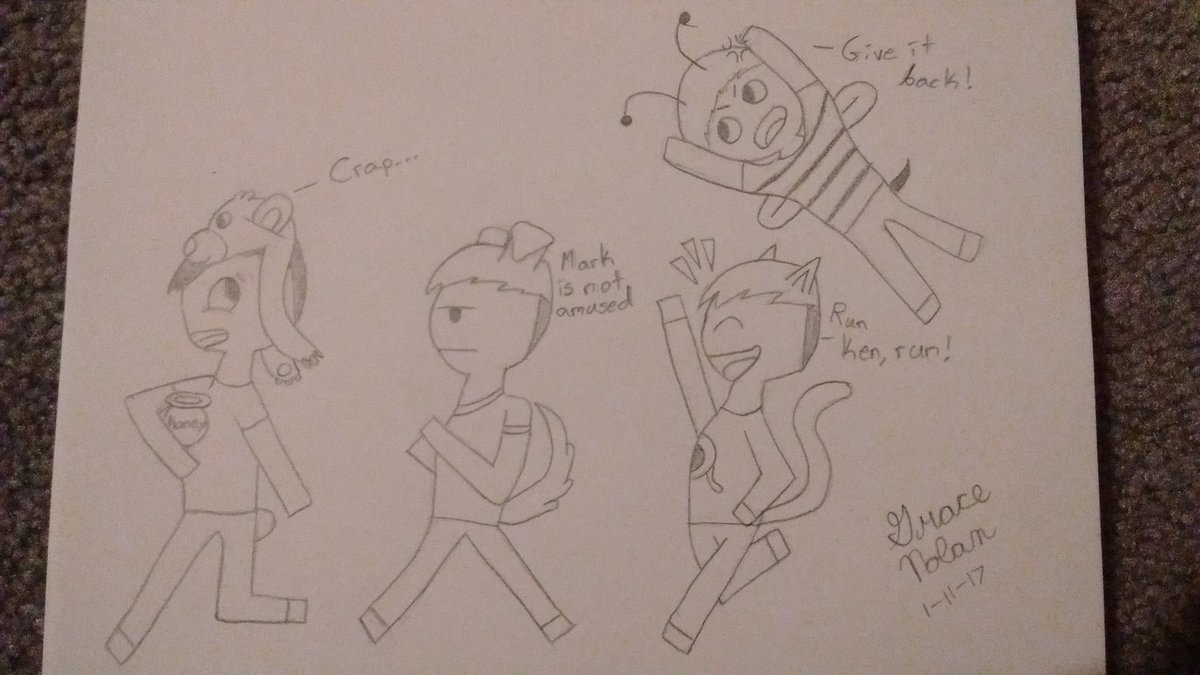 Give it
back!
Crap...
Mark
is not
amused
Run
Ken, run!
Honey
Grace
Nolan
1-11-17